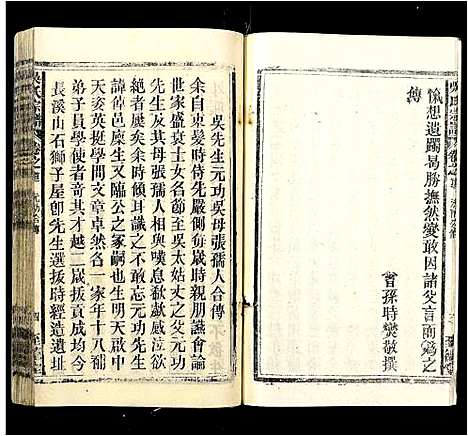 愉想遺躅曷勝撫然爰敢因諸父言而為之
傳
曾孫時爕敬撰
吳先生元功吳母張孺人合傳
余自束髮時侍先嚴側每歲時親朋讌會論
世家盛衰士女名節至吳太姑丈之父元功
先生及其母張孺人相與嘆息欷歔感泣欲
絕者屢矣余時傾耳識之不敢忘元功先生
諱偉邑庠生又臨公之冢嗣也生明天啟中
天姿英挺學問文章卓然名一家年十八補
弟子員學使者奇其才越二歲拔貢成均今
長溪山石獅子屋卽先生選拔時經造遺址
吳氏宗譜